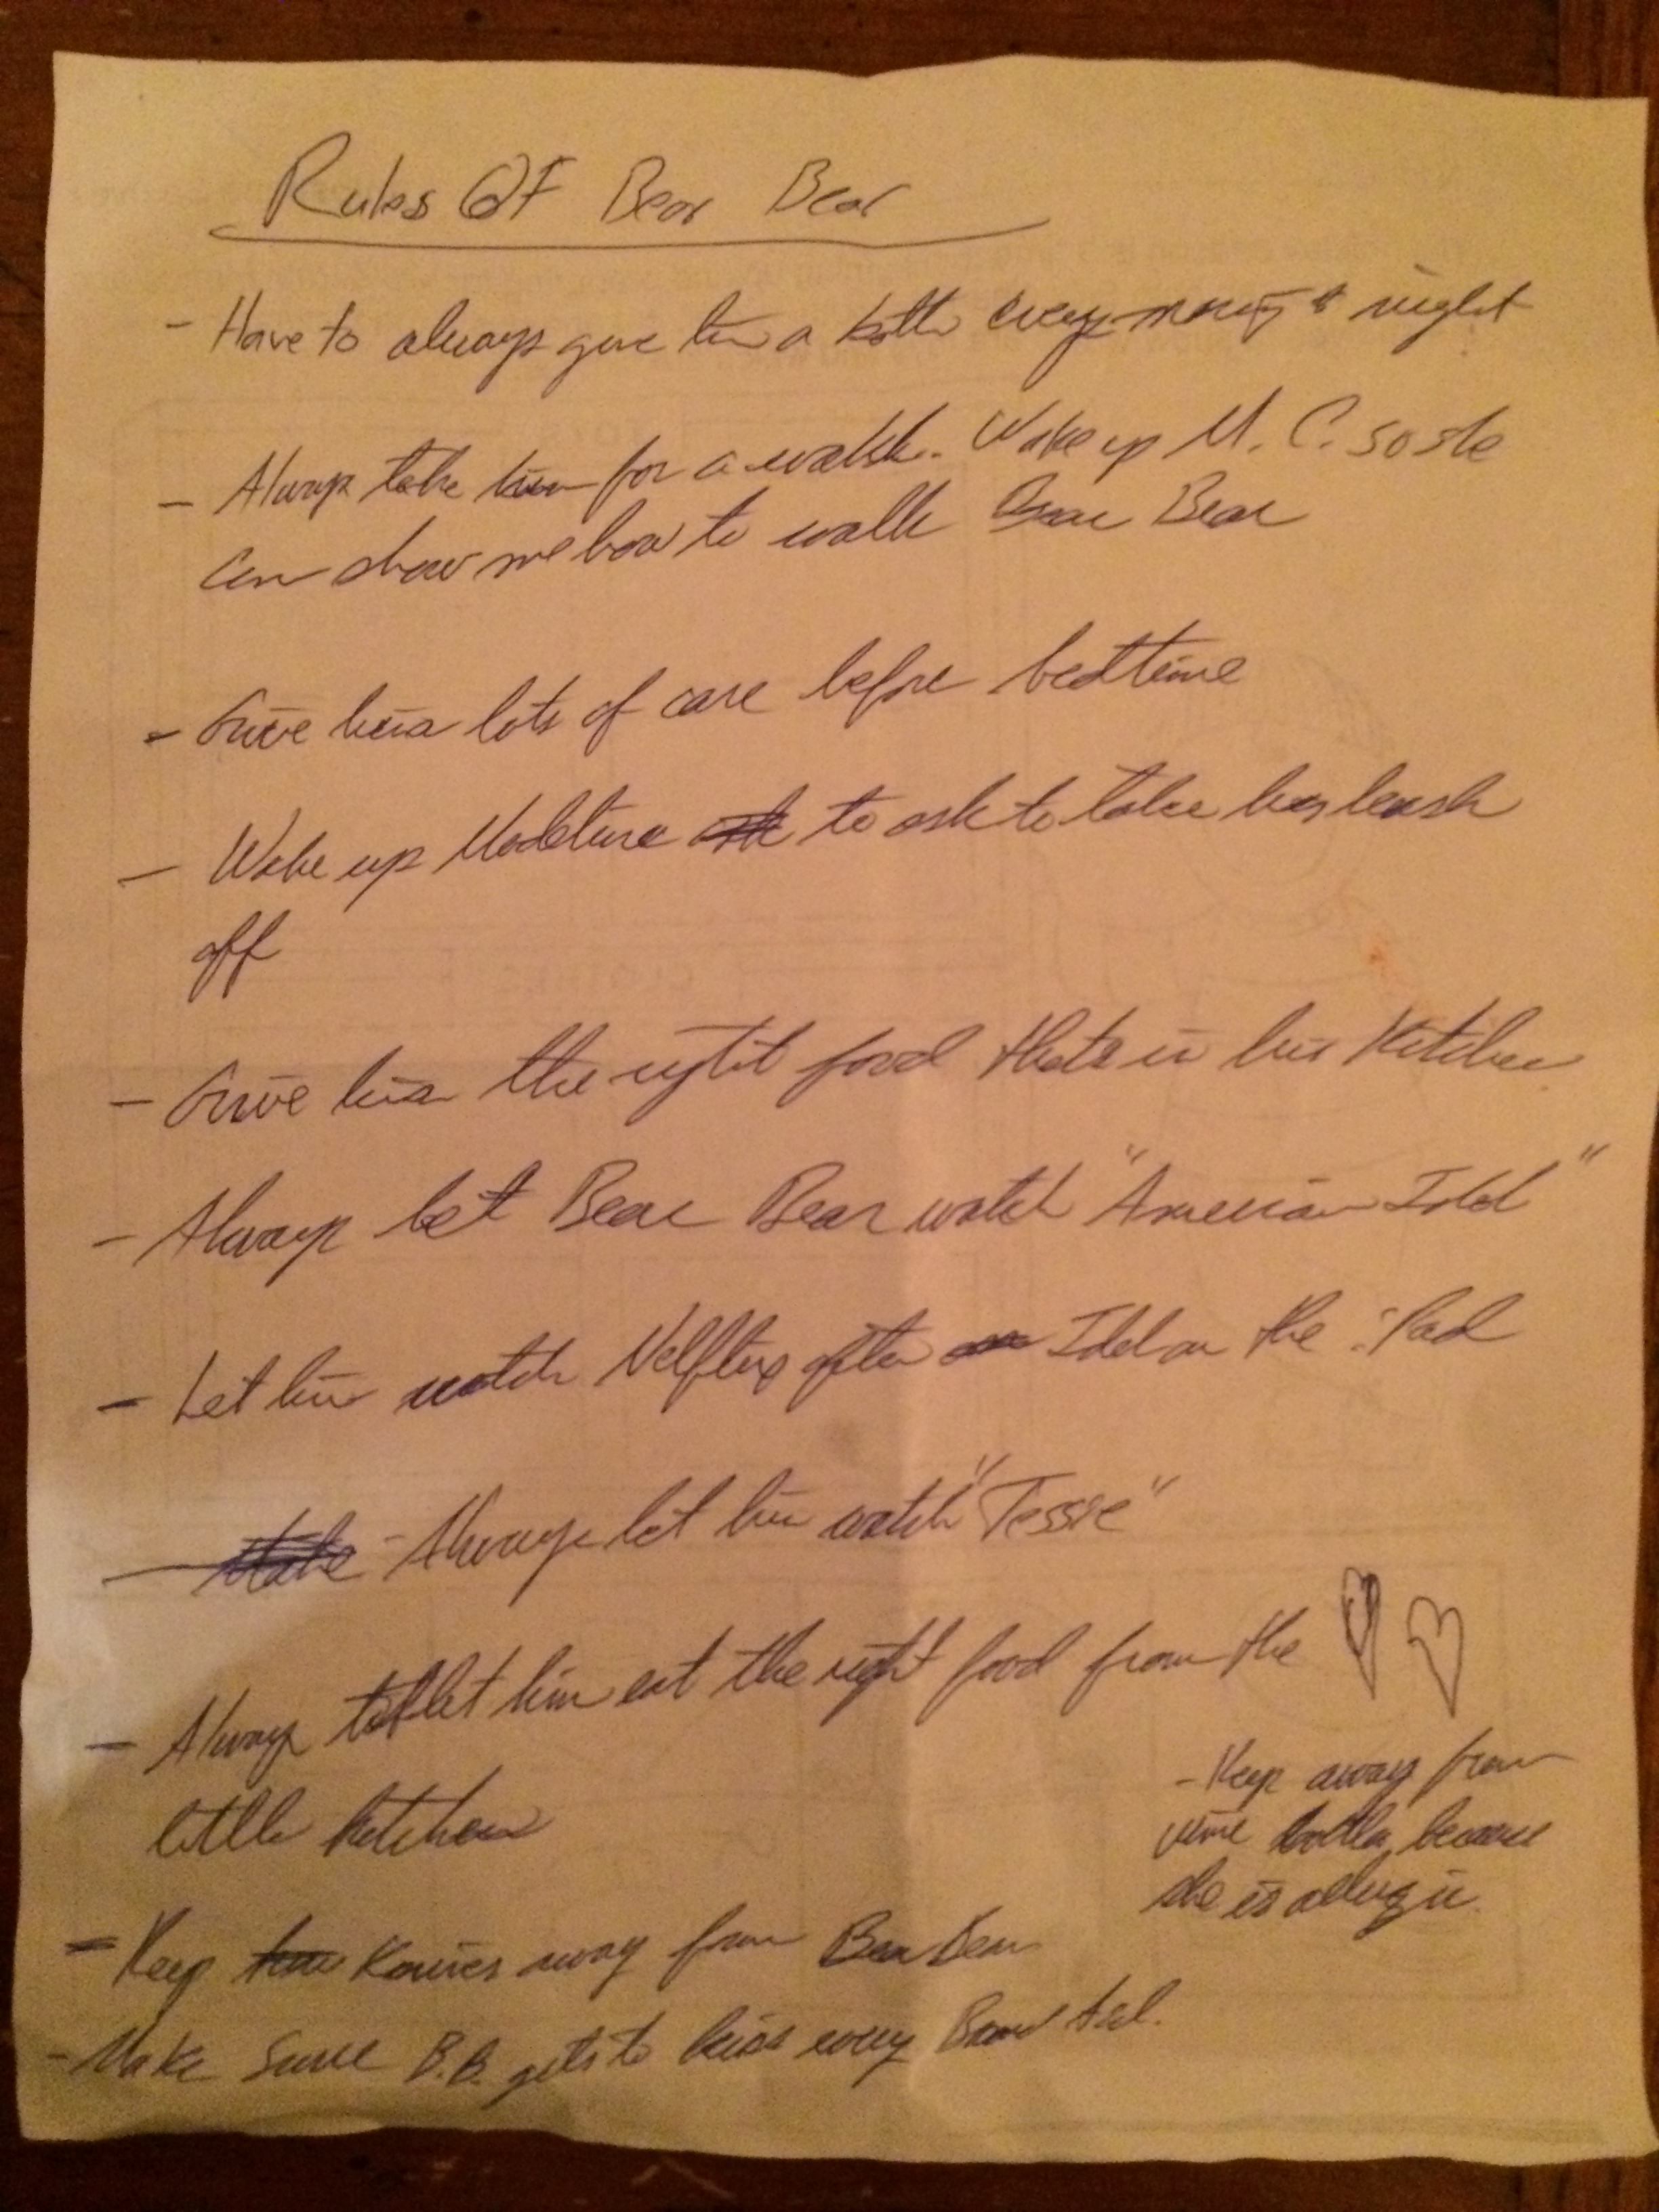 Rules Of Bear Bear
- Have to always give him a bottle every morning & night
- Always take him for a walk. Wake up M. C. so she
can show me how to walk Bear Bear
- Give him lots of care before bedtime
- Wake up to ask to take his leash
off
- Give him the right food thats in his Kitchen
- Always let Bear Bear watch "American Idol"
- Let him watch Netflix after Idol on the iPad
- Always let him watch "Jessie"
- Always let him eat the right food from the
little kitchen
- Keep away from
wine bottles, because
she is allergic
- Keep Knives away from Bear Bear
- Make Sure B.B. gets to kiss every